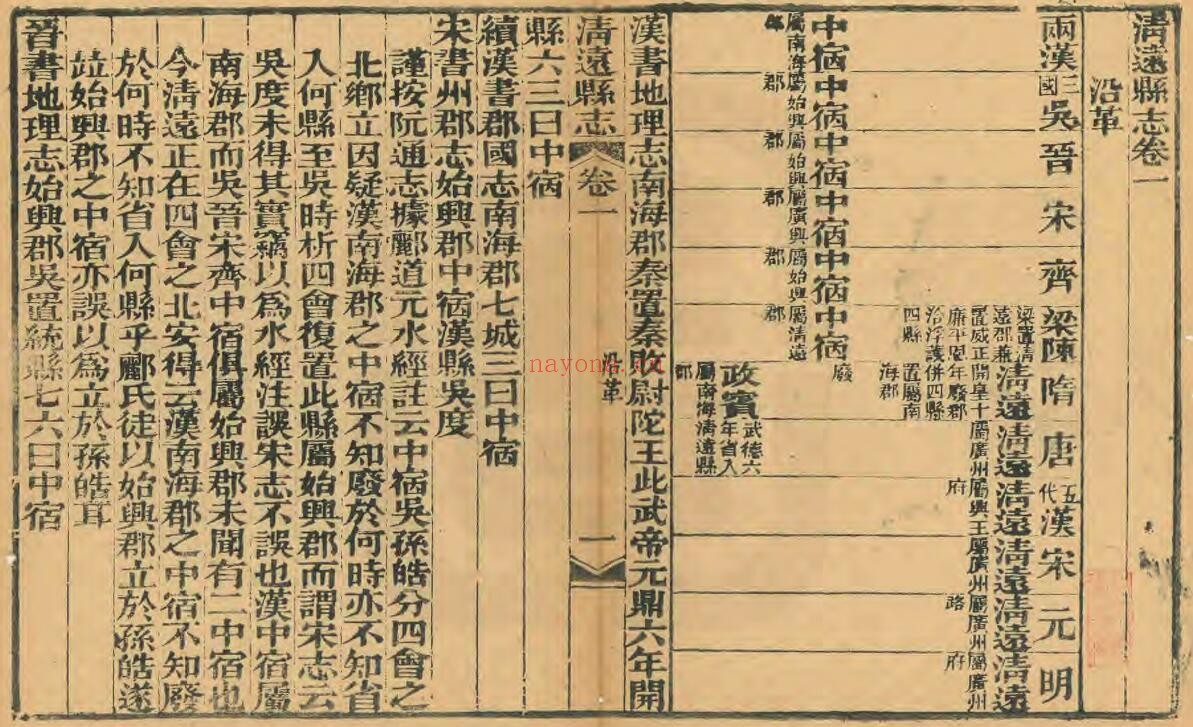 清遠縣志卷一
沿革
兩漢 三國吳 晉 宋 齊 梁陳 隋 唐 五代漢 宋 元 明
中宿 屬南海郡
中宿 屬始興郡
中宿 屬始興郡
中宿 屬廣興郡
中宿 屬始興郡
中宿 屬清遠郡
廢
梁置清遠郡兼置威正廉平恩洽浮護四縣
清遠 開皇十年廢郡併四縣置屬南海郡
清遠 屬廣州
清遠 屬興王府
清遠 屬廣州
清遠 屬廣州路
清遠 屬廣州府
政賓 武德六年省入清遠縣
屬南海郡
漢書地理志南海郡秦置秦敗尉陀王此武帝元鼎六年開
清遠縣志 卷一 沿革 一
縣六三曰中宿
續漢書郡國志南海郡七城三曰中宿
宋書州郡志始興郡中宿漢縣吳度
謹按阮通志據酈道元水經註云中宿吳孫皓分四會之
北鄉立因疑漢南海郡之中宿不知廢於何時亦不知省
入何縣至吳時析四會復置此縣屬始興郡而謂宋志云
吳度未得其實竊以爲水經注誤宋志不誤也漢中宿屬
南海郡而吳晉宋齊中宿俱屬始興郡未聞有二中宿也
今清遠正在四會之北安得云漢南海郡之中宿不知廢
於何時不知省入何縣乎酈氏徒以始興郡立於孫皓遂
竝始興郡之中宿亦誤以爲立於孫皓耳
晉書地理志始興郡吳置統縣七六曰中宿
nayona.cn